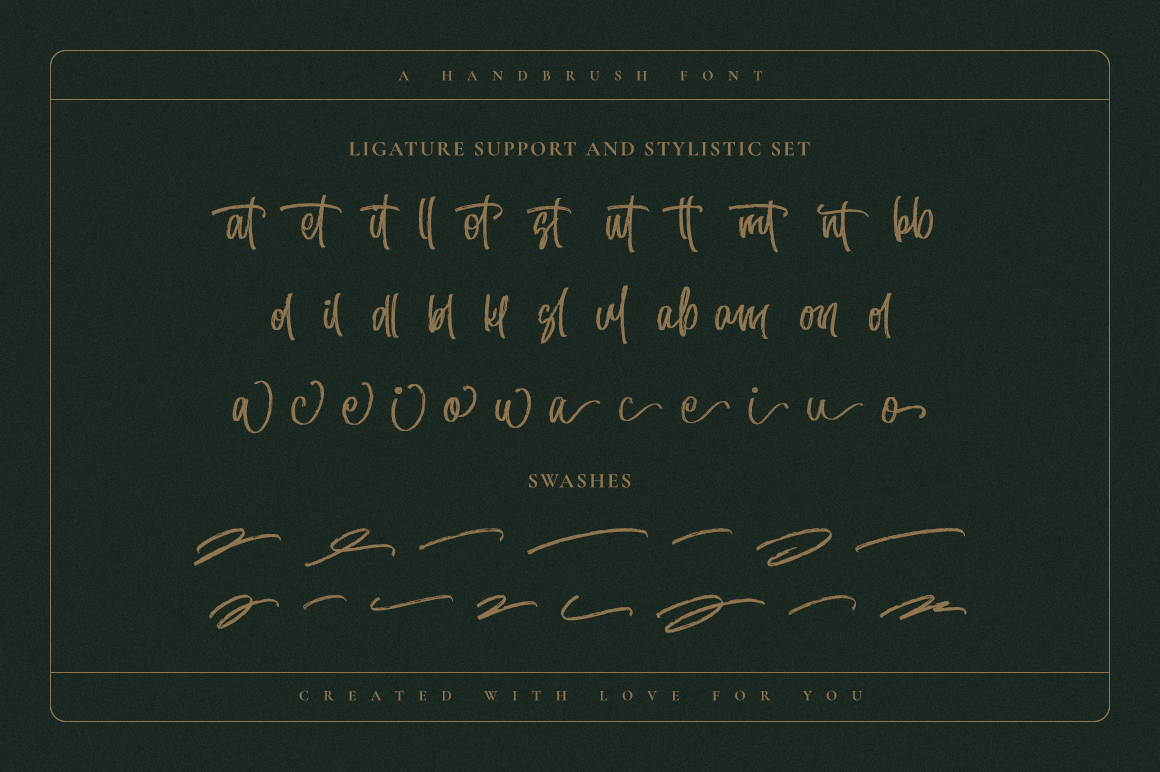 A HANDBRUSH FONT
LIGATURE SUPPORT AND STYLISTIC SET
at et it ll ot st ut tt mt nt bb
d il dl bl kl sl ul ab am on ol
a c e i o w a c e i u o
SWASHES
CREATED WITH LOVE FOR YOU